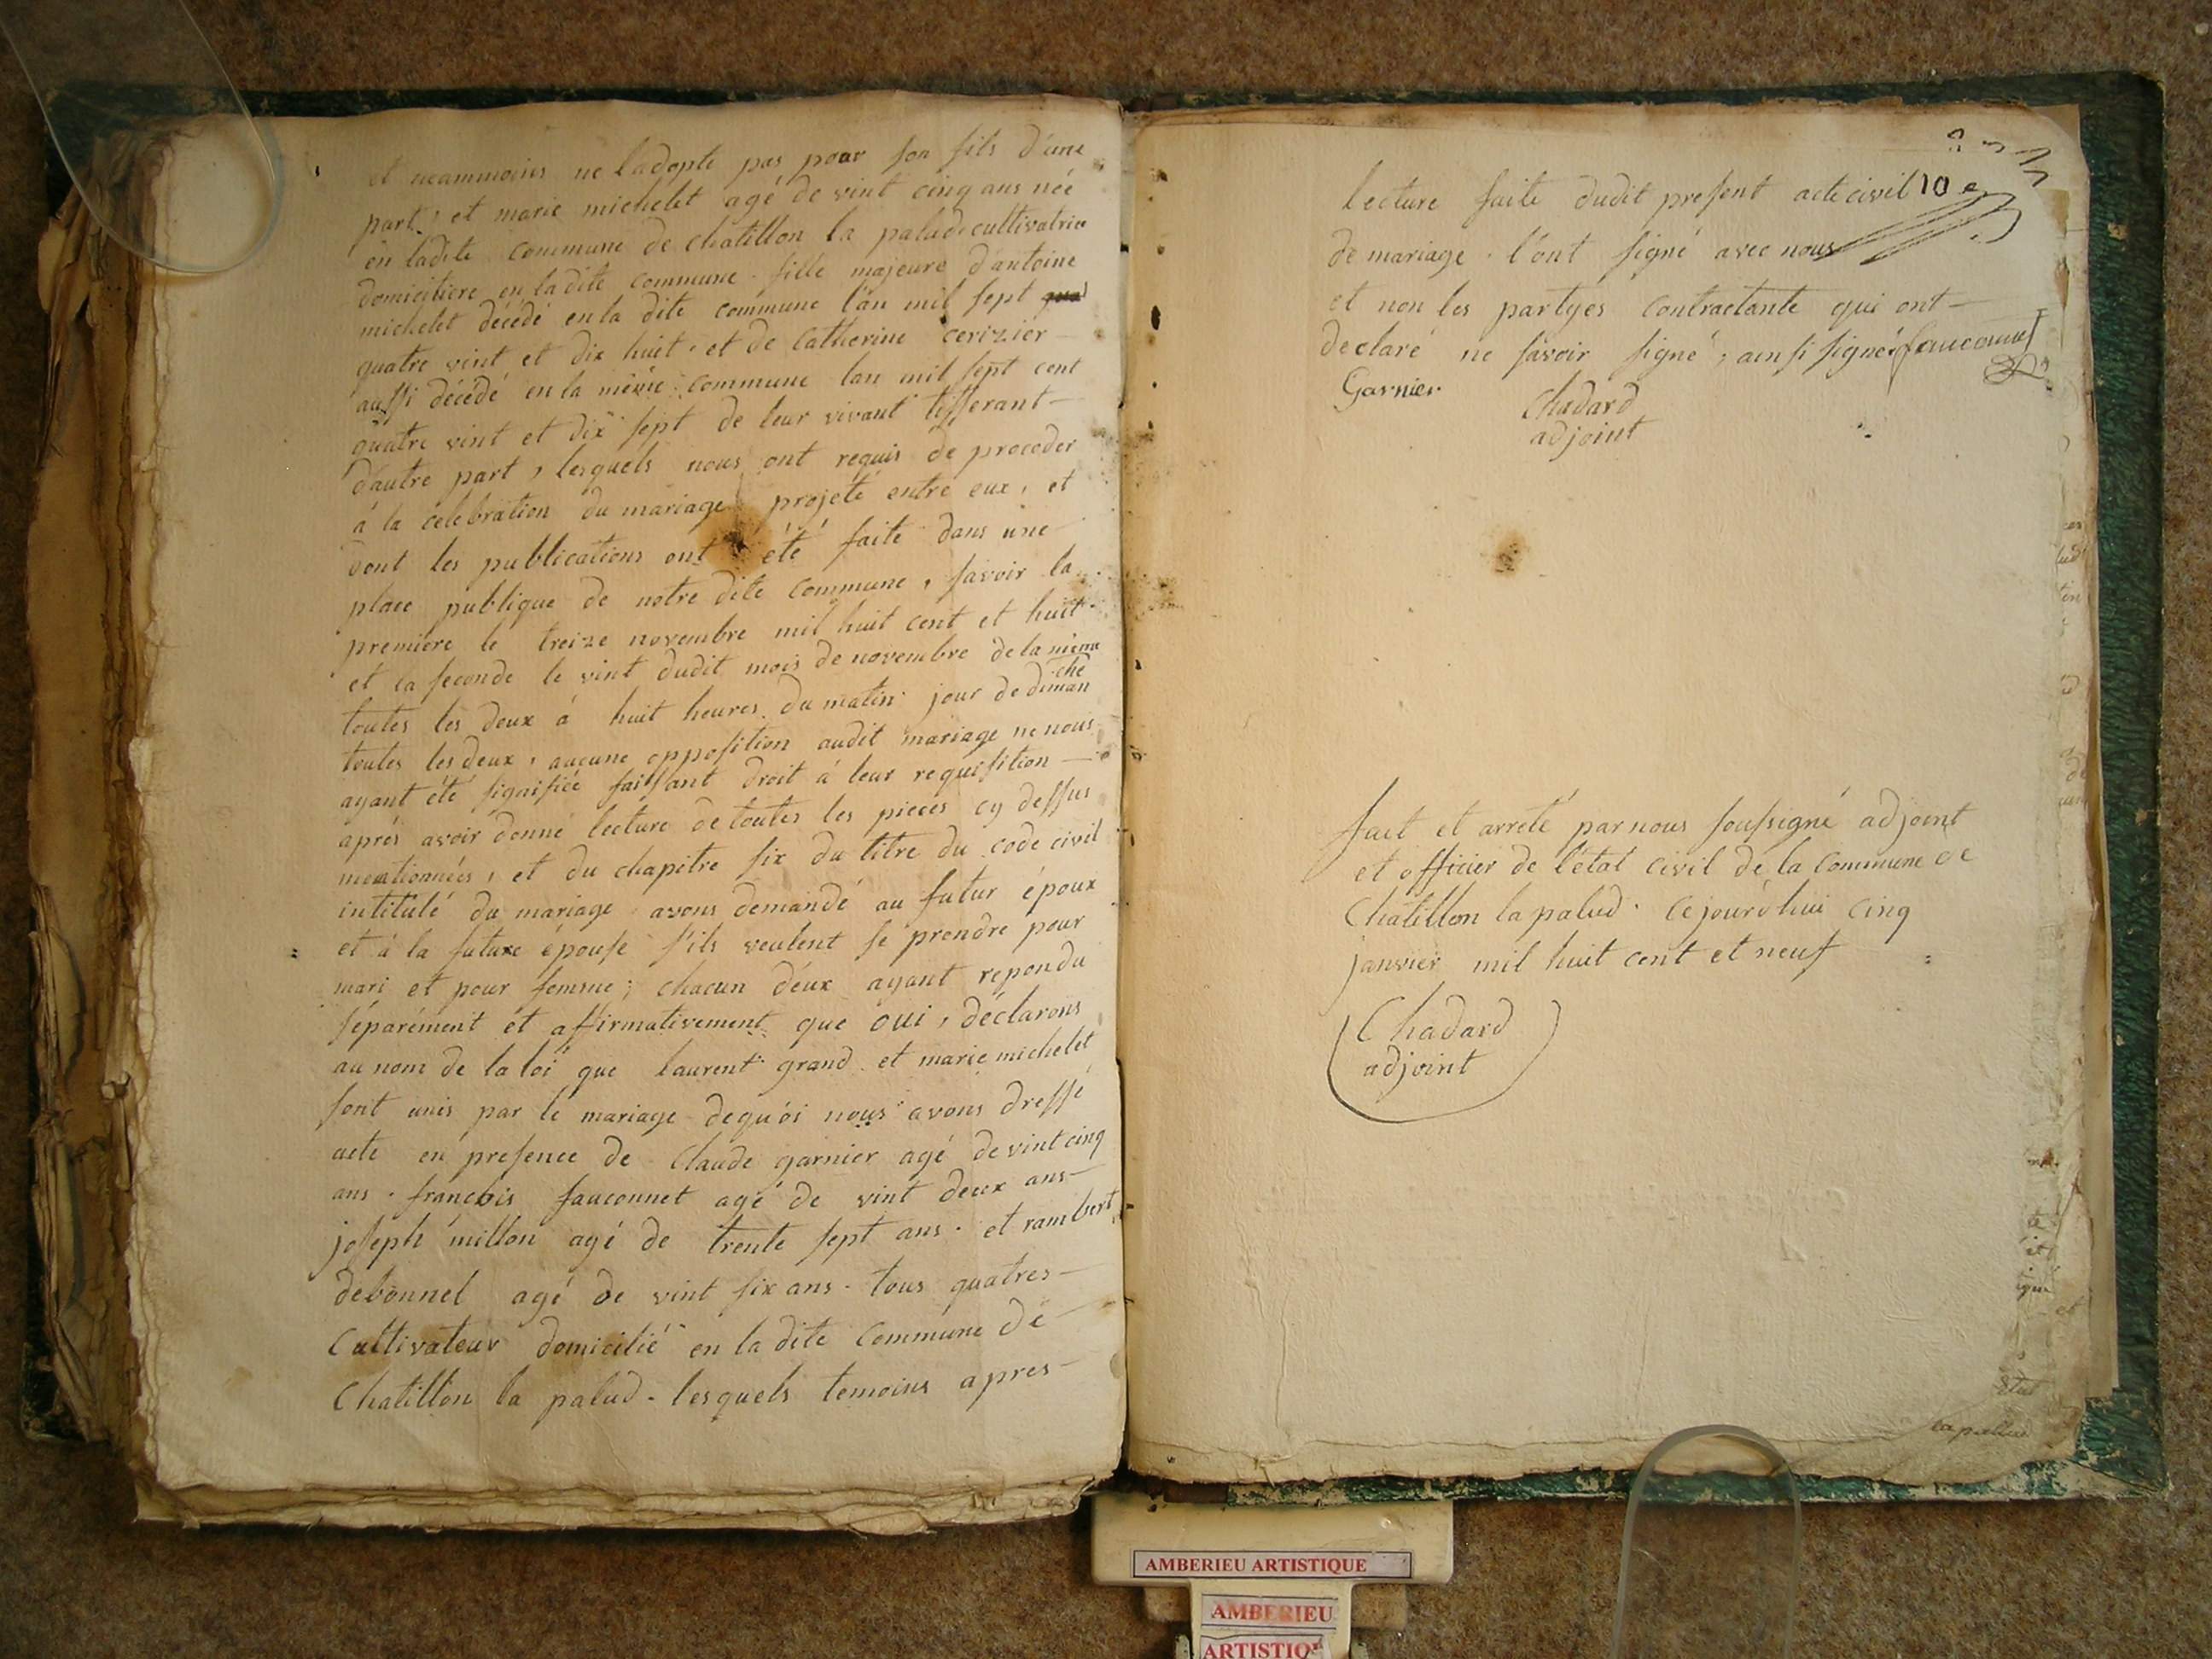 et neammoins ne ladopte pas pour son fils d'une
part, et marie michelet agé de vint cinq ans née
en ladite commune de chatillon la palud cultivatrice
domicilière en la dite commune fille majeure d'antoine
michelet décédé en la dite commune l'an mil sept
quatre vint et dix huit, et de Catherine cerizier
aussi décédé en la même commune lan mil sept cent
quatre vint et dix sept de leur vivant tisserant
d'autre part, lesquels nous ont requis de proceder
à la celebration du mariage projeté entre eux, et
dont les publications ont été faite dans une
place publique de notre dite Commune, savoir la
premiere le treize novembre mil huit cent et huit
et la seconde le vint dudit mois de novembre de la même
toutes les deux à huit heures du matin jour de dimanche
toutes les deux, aucune opposition audit mariage ne nous
ayant été signifiée faissant droit à leur requisition
aprés avoir donné lecture de toutes les pieces cy dessus
mentionnées, et du chapitre six du titre du code civil
intitulé du mariage avons demandé au futur époux
et à la future épouse s'ils veulent se prendre pour
mari et pour femme; chacun d'eux ayant repondu
séparément et affirmativement que oui, déclarons
au nom de la loi que laurent grand et marie michelet
sont unis par le mariage dequoi nous avons dressé
acte en presence de Claude garnier agé de vint cinq
ans. francois fauconnet agé de vint deux ans
joseph millon agé de trente sept ans. et rambert
debonnel agé de vint six ans. tous quatres
Cultivateur domicilié en la dite Commune de
Chatillon la palud. lesquels temoins apres
lecture faite dudit present acte civil 10 e
de mariage l'ont signé avec nous
et non les partyes contractante qui ont
declaré ne savoir signé, ainsi signé fauconnet
Garnier Chadard
adjoint
fait et arreté par nous soussigné adjoint
et officier de l'état civil de la Commune de
Chatillon la palud. Cejourd'hui cinq
janvier mil huit cent et neuf
Chadard
adjoint
la pallud
AMBERIEU ARTISTIQUE
AMBERIEU